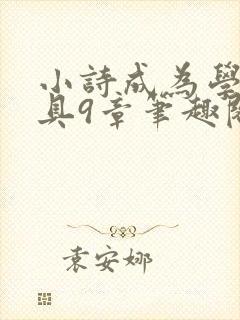 小詩成為學
具9章筆趣閣
袁安娜